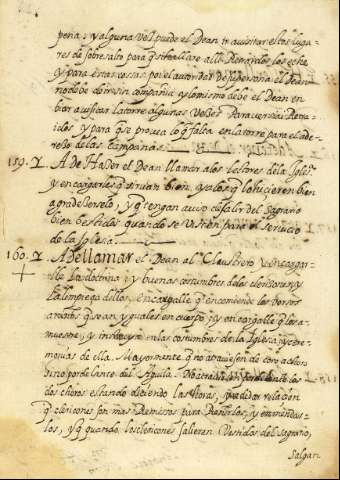 pena: y alguna vez puede el Dean ir a visitar estos luga-
res de sobresalto para q si hallare alli Renardos los eche
y para estas cosas por el autoridad de su persona el Dean
no debe de ir sin compañia y lo mismo debe el Dean en
biar a visitar la torre algunas vezes para ver sia y
y para que provea lo q falta en la torre para el ade-
reso de las campanas.
159. A De Hazer el Dean llamar a los lectores de la Iglesᵃ
y encargarles q sirvan bien, y a los q lo hicieren bien
agradeserselo, y q tengan aviso de salir del Sagrario
bien bestidos quando se visten para el servicio
de la Iglesia.
160. A de llamar el Dean al Claustrero y encargar-
le la dotrina, y buenas costumbres de los clerisones y
la limpiesa dellos, encargalle q encomiende los versos
a moços q sean yguales en cuerpo, y encargalle q los a-
muestre, y instituya en las costumbres de la Iglesia, y cere-
monias de ella. Mayormente q no atraviesen de coro a coro
sino por delante del Aguila.
los choros estando disiendo las Horas,
quando los clerisones salieren vestidos del Sagrario,
salgan